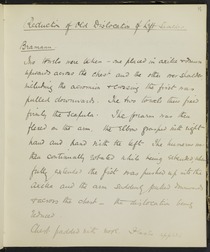 Reduction of Old Dislocation of Left
Bramann
Two towels were taken - one placed in axilla & drawn
upwards across the chest and the other over shoulder
including the acromion & crossing the first was
pulled downwards. The two towels then fixed
firmly the scapula. The forearm was then
flexed on the arm, the elbow grasped with right
hand and hand with the left. The humerus was
then continually rotated while being
fully extended the fist was pushed up into the
axilla and the arm suddenly pulled downwards
& across the chest - the dislocation being
reduced
pad with wool.